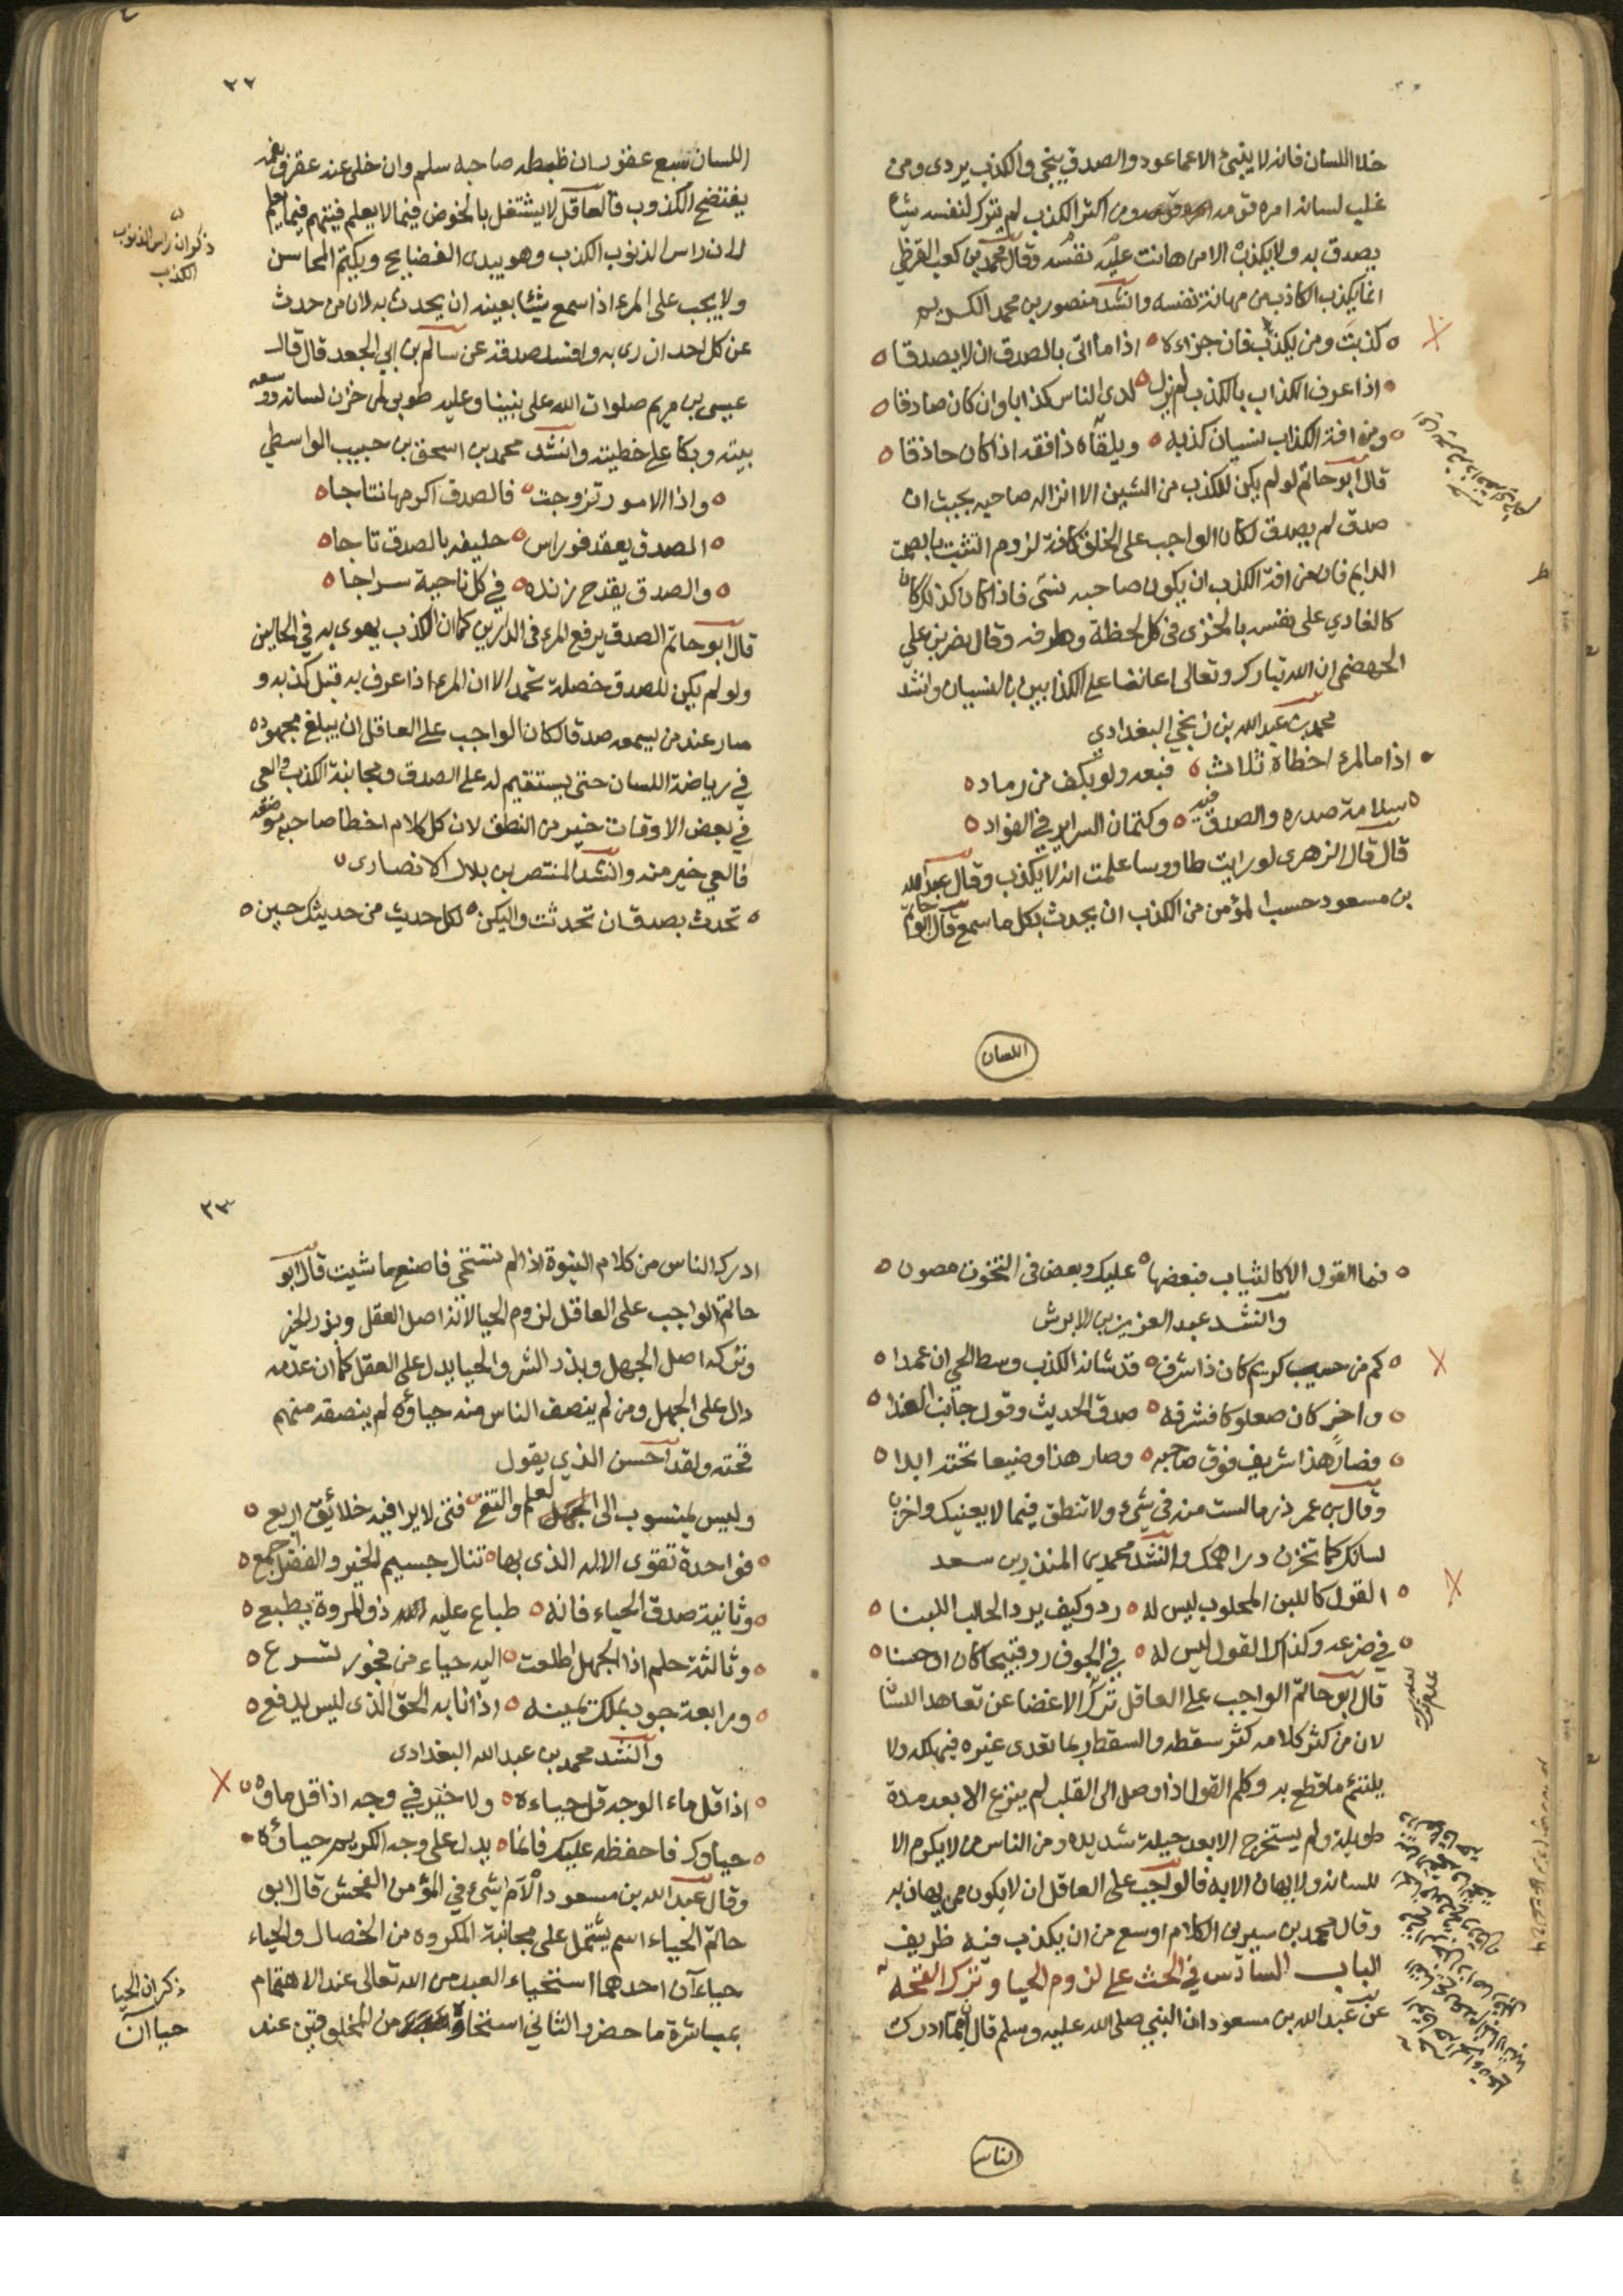 خلا اللسان فانه لا ينبئ الا عما عود والصدق ينجي والكذب يردى ومن
غلب لسانه امره قومه ومن اكثر الكذب لم يترك لنفسه شيئا
يصدق به ولا يكذب الا من هانت عليه نفسه وقال محمد بن كعب القرظي
انما يكذب الكاذب من مهانة نفسه وانشد منصور بن محمد الكريم
كذبت ومن يكذب فان جزاءه اذا ما اتى بالصدق ان لا يصدقا
اذا عرف الكذاب بالكذب لم يزل لدى الناس كذابا وان كان صادقا
ومن افة الكذاب نسيان كذبه ويلقاه ذا فقه اذا كان حاذقا
قال ابو حاتم لو لم يكن للكذب من الشين الا انزاله صاحبه بحيث ان
صدق لم يصدق لكان الواجب على الخلق كافة لزوم التثبت بالصمت
الدايم فان من افة الكذب ان يكون صاحبه نسى فاذا كان كذلك كان
كالغادي على نفسه بالخزى فى كل لحظة وطرفه وقال نضر بن علي
الجهضمي ان الله تبارك وتعالى اعاننا على الكذابين بالنسيان وانشد
محمد بن عبد الله بن زنجي البغدادي
اذا ما المرء اخطاه ثلاث فبعه ولو بكف من رماد
سلامة صدره والصدق فيه وكتمان السراير في الفواد
قال قال الزهرى لو رايت طاووسا علمت انه لا يكذب وقال عبد الله
بن مسعود حسب المؤمن من الكذب ان يحدث بكل ما سمع قال ابو حاتم
اللسان
٢٢
اللسان سبع عقور ان ظبطه صاحبه سلم وان خلى عنه عقره وبفمه
يفتضح الكذوب فالعاقل لا يشتغل بالخوض فيما لا يعلم فيتهم فيما يعلم
لان راس الذنوب الكذب وهو يبدى الفضايح ويكتم المحاسن
ولا يجب على المرء اذا سمع شيئا بعينه ان يحدث به لان من حدث
عن كل احد ازرى به وافسد صدقه عن سالم بن ابي الجعد قال قال
عيسى بن مريم صلوات الله على نبينا وعليه طوبى لمن خزن لسانه ووسعه
بيته وبكا على خطيته وانشد محمد بن اسحق بن حبيب الواسطي
واذا الامور تزوجت فالصدق اكرمها نتاجا
الصدق يعقد فوق راس حليفه بالصدق تاجا
والصدق يقدح زنده في كل ناحية سراجا
قال ابو حاتم الصدق يرفع المرء فى الدارين كما ان الكذب يهوى به في الحالين
ولو لم يكن للصدق خصلة تحمد الا ان المرء اذا عرف به قبل كذبه و
صار عند من يسمعه صدقا لكان الواجب على العاقل ان يبلغ مجهوده
في رياضة اللسان حتى يستقيم له على الصدق ومجانبة الكذب والعي
في بعض الاوقات خير من النطق لان كل كلام اخطا صاحبه موضعه
فالعي خير منه وانشد المنتصر بن بلال الانصارى
تحدث بصدق ان تحدثت وليكن لكل حديث من حديثك حين
ذكر ان راس الذنوب
الكذب
فما القول الا كالثياب فبعضها عليك وبعض فى التخوت مصون
وانشد عبد العزيز بن الابرش
كم من حسيب كريم كان ذا شرف قد شانه الكذب وسط الحي ان عمدا
واخر كان صعلوكا فشرفه صدق الحديث وقول جانب الفندا
فصار هذا شريف فوق صاحبه وصار هذا وضيعا تحته ابدا
وقال بن عمر ذر ما لست منه في شيء ولا تنطق فيما لا يعنيك واخزن
لسانك كما تخزن دراهمك وانشد محمد بن المنذر بن سعد
القول كاللبن المحلوب ليس له رد وكيف يرد الحالب اللبنا
في ضرعه وكذاك القول ليس له في الجوف رد قبيحا كان او حسنا
قال ابو حاتم الواجب على العاقل ترك الاغضا عن تعاهد اللسان
لان من كثر كلامه كثر سقطه والسقط ربما تعدى غيره فيهلكه ولا
يلتئم ما قطع به وكلم القول اذا وصل الى القلب لم ينزع الا بعد مدة
طويلة ولم يستخرج الا بعد حيلة شديده ومن الناس من لا يكرم الا
للسانه ولا يهان الا به فالواجب على العاقل ان لا يكون ممن يهان به
وقال محمد بن سيرين الكلام اوسع من ان يكذب فيه ظريف
الباب السادس في الحث على لزوم الحيا وترك القحه
عن عبد الله بن مسعود ان النبي صلى الله عليه وسلم قال انما ادرك
الناس
٢٣
ادرك الناس من كلام النبوة اذا لم تستحي فاصنع ما شيت قال ابو
حاتم الواجب على العاقل لزوم الحيا لانه اصل العقل وبذر الخير
وتركه اصل الجهل وبذر الشر والحيا يدل على العقل كما ان عدمه
دال على الجهل ومن لم ينصف الناس منه حياؤه لم ينصفه منهم
قحته ولقد احسن الذي يقول
وليس بمنسوب الى العلم والتقى فتى لا يرا فيه خلائق اربع
فواحدة تقوى الاله الذى بها تنال جسيم الخير والفضل اجمع
وثانية صدق الحياء فانه طباع عليه ذو المروة يطبع
وثالثة حلم اذا الجهل اطلعت اليه حياء من فجور تسرع
ورابعة جود بملك يمينه اذا نابه الحق الذى ليس يدفع
وانشد محمد بن عبد الله البغدادى
اذا قل ماء الوجه قل حياءه ولا خير في وجه اذا قل ماوه
حياوك فاحفظه عليك فانما يدل على وجه الكريم حياؤه
وقال عبد الله بن مسعود الام شيء في المؤمن الفحش قال ابو
حاتم الحياء اسم يشتمل على مجانبة المكروه من الخصال والحياء
حياءآن احدهما استحياء العبد من الله تعالى عند الاهتمام
بمباشرة ما حضر الثاني استحياوه من المخلوقين عند
ذكر ان الحيا
حياآن